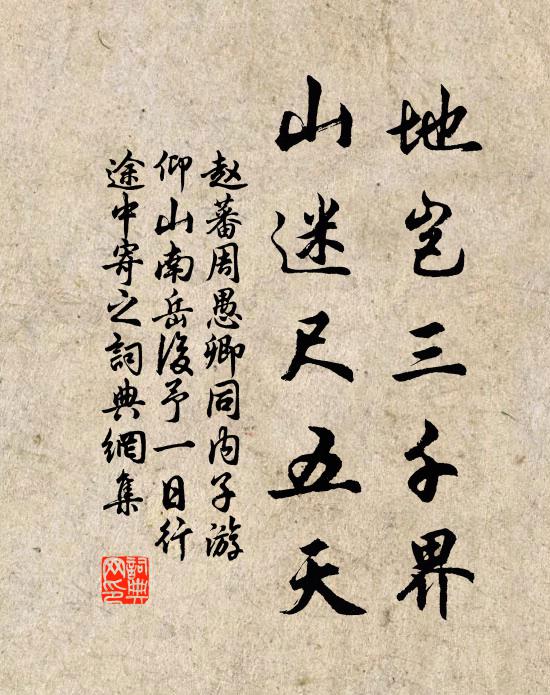 地岂三千界
山迷尺五天
赵蕃周愚卿同内子游
仰山南岳後予一日行
途中寄之詞典網集
詞典网印